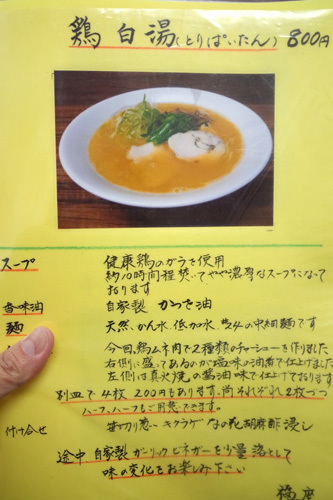 鶏白湯(とりぱいたん) 800円
スープ 健康鶏のガラを使用
約10時間程焚いてやや濃厚なスープになって
おります
香味油 自家製 かつを油
麺 天然かん水 低加水 #24の中細麺です
今回、鶏ムネ肉で2種類のチャーシューを作りました
右側に盛ってあるのが塩味の油煮で仕上げました
左側は直火焼の醤油味で仕上げております
別皿で4枚 200円もあります。尚それぞれ2枚づつ
ハーフ&ハーフもご用意できます。
付け合せ 芽切り葱 キクラゲ なの花胡麻酢浸し
途中 自家製ガーリックビネガーを少量落として
味の変化をお楽しみ下さい